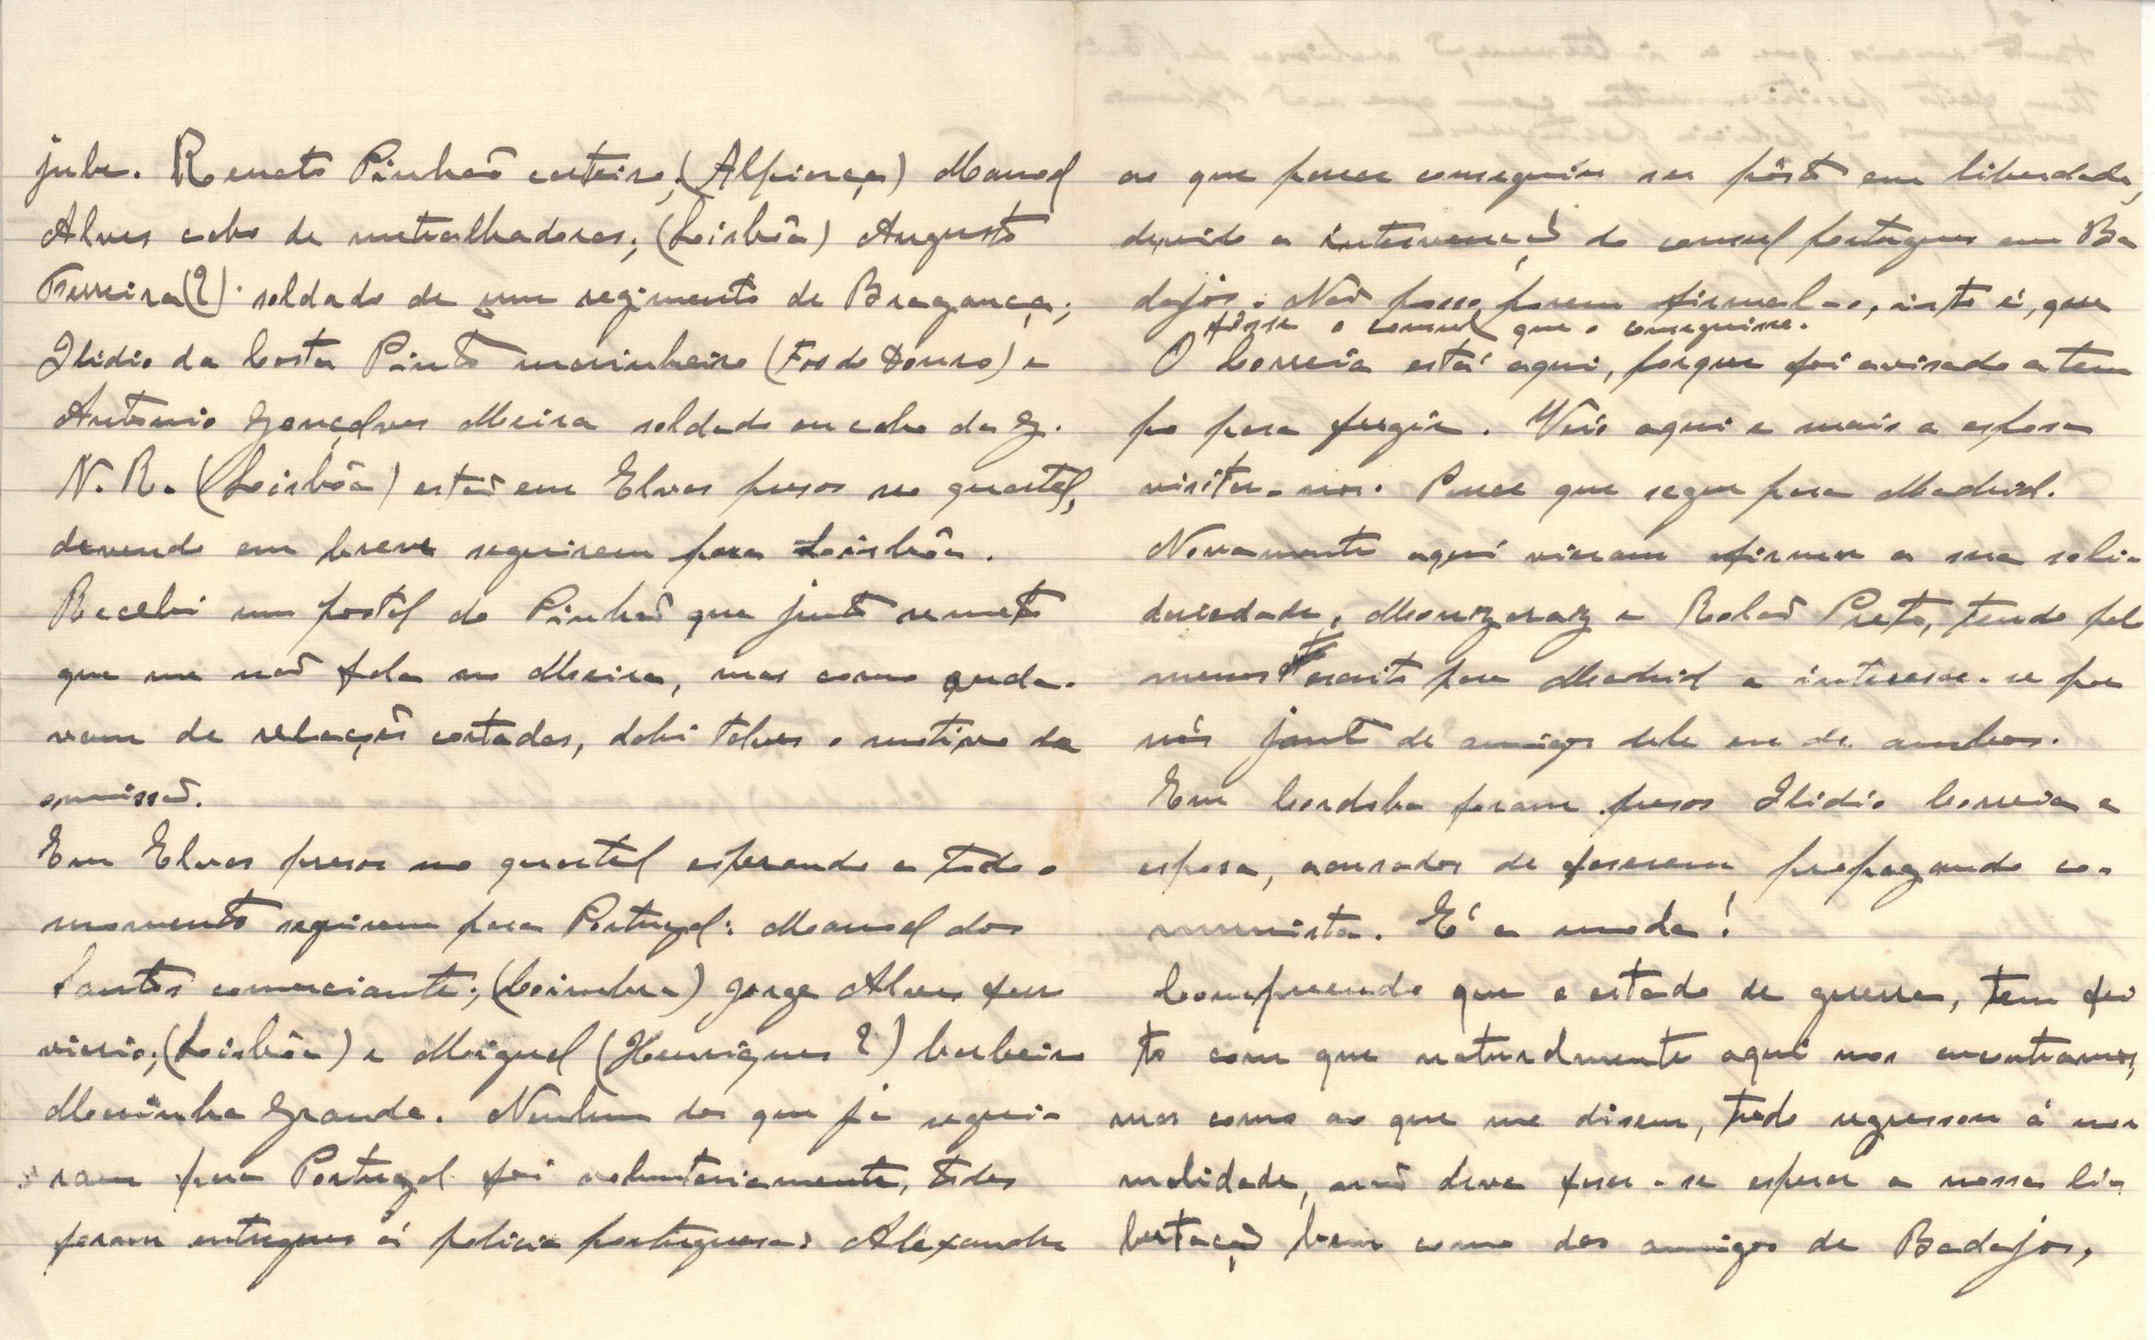 jube. Renato Pinhão carteiro; (Alpiarça) Manoel
Alves cabo de metralhadoras; (Leisbôa) Augusto
Ferreira (?) soldado de um regimento de Bragança;
Ilidio da Costa Pinto marinheiro (Foz do Douro) e
Antonio Gonçalves Meira soldado ou cabo da G.
N. R. (Leisbôa) estão em Elvas presos no quartel,
devendo em breve seguirem para Leisbôa.
Recebi um postal do Pinhão que junto remeto
que me não fala no Meira, mas como anda-
vam de relações cortadas, dahi talves o motivo da
omissão.
Em Elvas presos no quartel esperando a todo o
momento seguirem para Portugal: Manoel dos
Santos comerciante; (Coimbra) Jorge Alves fer
viario; (Leisbôa) e Miguel (Henriques ?) barbeiro
Marinha Grande. Nenhum dos que já segui-
ram para Portugal foi voluntariamente, todos
foram entregues á policia portuguesa. Alexandre
ao que parece conseguiu ser pôsto em liberdade,
devido a intervenção do consul portugues em Ba
dajós. Não posso porem afirmal-o, isto é, que
fôsse o consul que o conseguisse.
O Correia está aqui, porque foi avisado a tem
po para fugir. Veio aqui e mais a esposa
visitar-nos. Parece que segue para Madrid.
Novamente aqui vieram afirmar a sua soli-
dariedade, Monzaraz e Rolão Preto, tendo pelo
menos escrito para Madrid a interessar-se por
nós junto de amigos dele ou de ambos.
Em Cordoba foram presos Ilidio Correia e
esposa, acusados de faserem propaganda co-
munista. É a moda!
Compreendo que o estado de guerra, tem fei
to com que naturalmente aqui nos encontramos,
mas como ao que me disem, tudo regressou á nor
malidade, não deve faser-se esperar a nossa li-
bertação bem como dos amigos de Badajos,